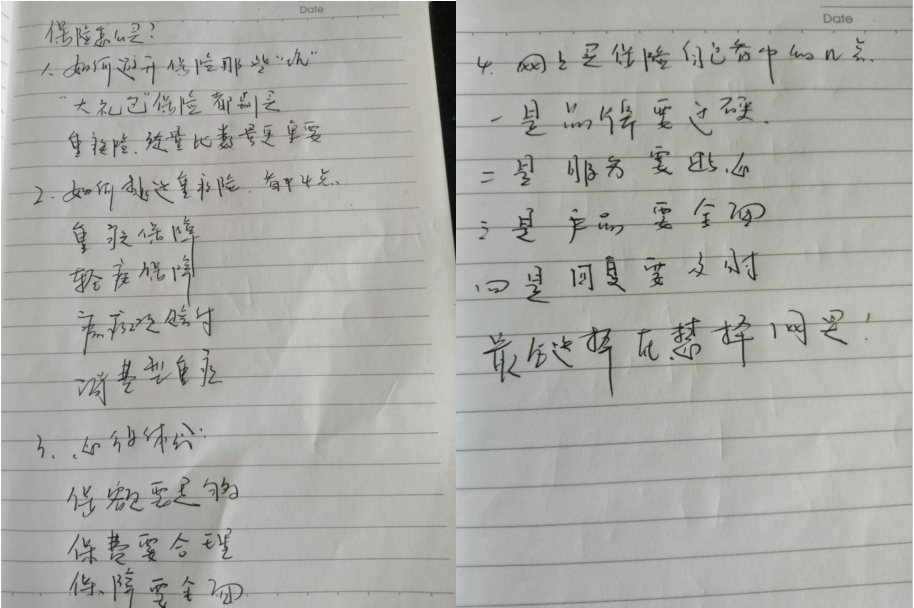 Date
保险怎么买?
1. 如何避开保险那些"坑"
"大礼包"保险都别买
重疾险.质量比数量更重要
2. 如何挑选重疾险.看中4点
重疾保障
轻症保障
疾病多次赔付
消费型重疾
3. 心得体会:
保额要足够
保费要合理
保障要全面
Date
4. 网上买保险自己看中的几点
一是品牌要过硬.
二是服务要贴心
三是产品要全面
四是回复要及时
最全选择在慧择网买!